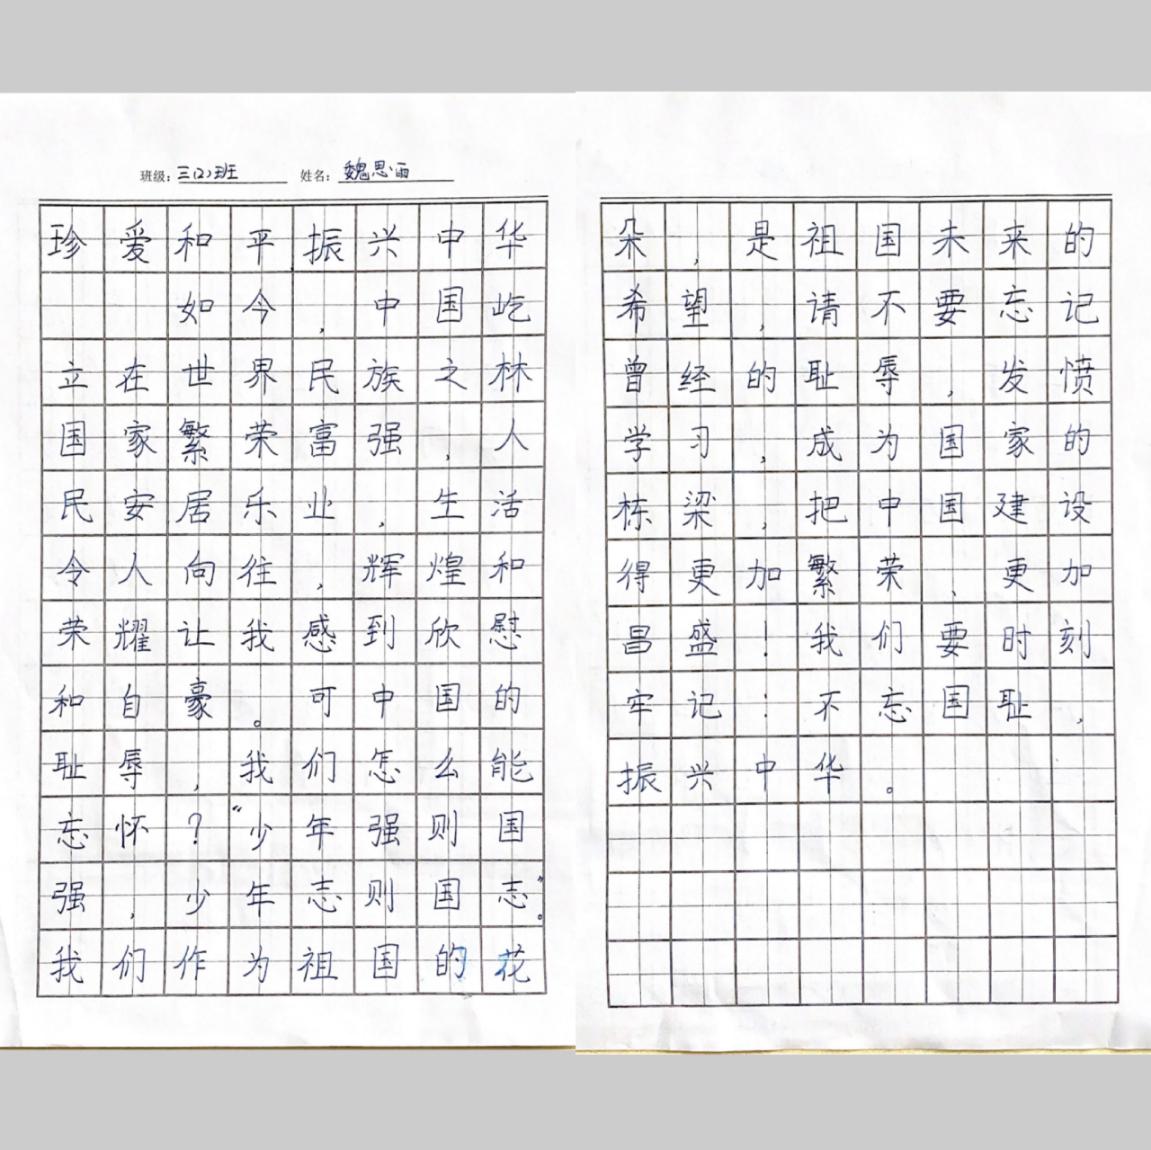 班级：三(2)班 姓名：魏思雨
珍爱和平振兴中华
如今，中国屹
立在世界民族之林
国家繁荣富强，人
民安居乐业，生活
令人向往，辉煌和
荣耀让我感到欣慰
和自豪。可中国的
耻辱，我们怎么能
忘怀？“少年强则国
强，少年志则国志”。
我们作为祖国的花
朵，是祖国未来的
希望，请不要忘记
曾经的耻辱，发愤
学习，成为国家的
栋梁，把中国建设
得更加繁荣、更加
昌盛！我们要时刻
牢记：不忘国耻，
振兴中华。